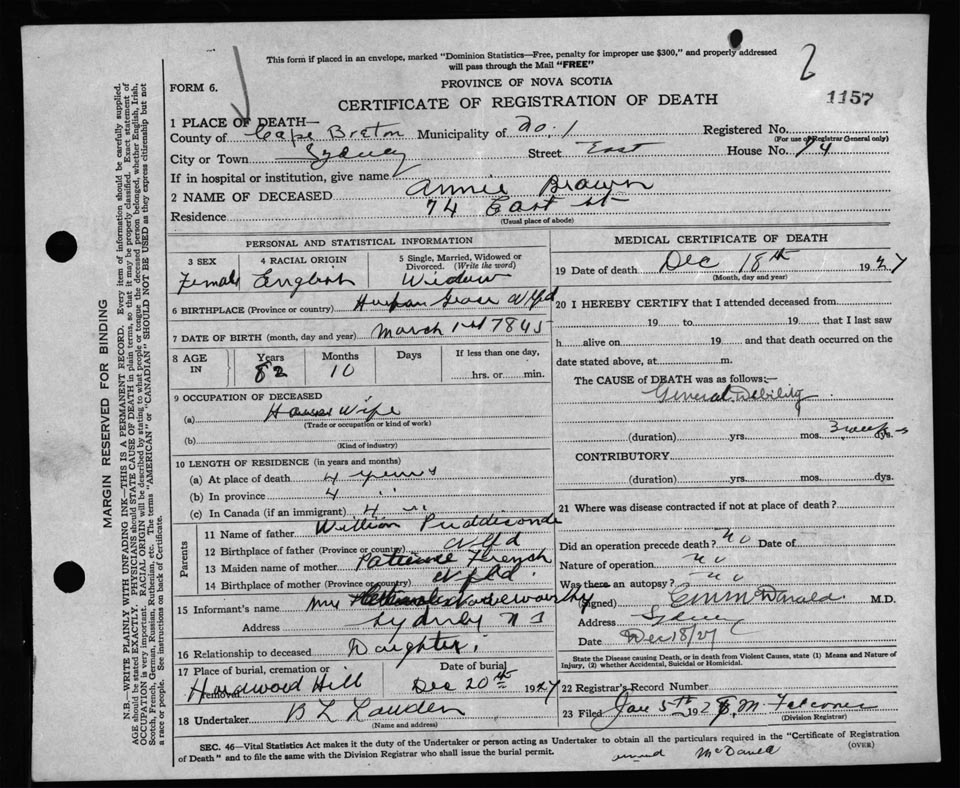 This form if placed in an envelope, marked "Dominion Statistics—Free, penalty for improper use $300," and properly addressed
will pass through the Mail "FREE"
2
FORM 6.
PROVINCE OF NOVA SCOTIA
CERTIFICATE OF REGISTRATION OF DEATH
1157
1 PLACE OF DEATH—
County of Cape Breton Municipality of No. 1 Registered No.
(For use of Registrar General only)
City or Town Sydney Street East House No. 74
If in hospital or institution, give name
2 NAME OF DECEASED Annie Brown
Residence 74 East St
(Usual place of abode)
PERSONAL AND STATISTICAL INFORMATION
3 SEX 4 RACIAL ORIGIN 5 Single, Married, Widowed or Divorced. (Write the word)
Female English Widow
6 BIRTHPLACE (Province or country) Grace Nfld
7 DATE OF BIRTH (month, day and year) March 1845
8 AGE IN Years Months Days If less than one day,
82 10 hrs. or min.
9 OCCUPATION OF DECEASED
(a) House Wife
(Trade or occupation or kind of work)
(b)
(Kind of industry)
10 LENGTH OF RESIDENCE (in years and months)
(a) At place of death 4 years
(b) In province 4 "
(c) In Canada (if an immigrant) 4 "
Parents
11 Name of father William
12 Birthplace of father (Province or country) Nfld
13 Maiden name of mother Patience French
14 Birthplace of mother (Province or country) Nfld.
15 Informant's name Mrs
Address Sydney N S
16 Relationship to deceased Daughter
17 Place of burial, cremation or Date of burial
Hardwood Hill Dec 20th 1927
18 Undertaker B L
(Name and address)
MEDICAL CERTIFICATE OF DEATH
19 Date of death Dec 18th 1927
(Month, day and year)
20 I HEREBY CERTIFY that I attended deceased from
19 to 19 that I last saw
h alive on 19 and that death occurred on the
date stated above, at m.
The CAUSE of DEATH was as follows:—
General Debility
(duration) yrs. mos. 3 weeks dys.
CONTRIBUTORY
(duration) yrs. mos. dys.
21 Where was disease contracted if not at place of death?
Did an operation precede death? No Date of
Nature of operation No
Was there an autopsy? No
(Signed) McDonald M.D.
Address Sydney
Date Dec 18/27
State the Disease causing Death, or in death from Violent Causes, state (1) Means and Nature of
Injury, (2) whether Accidental, Suicidal or Homicidal.
22 Registrar's Record Number
23 Filed Jan 5th 192 M. Falconer
(Division Registrar)
SEC. 46—Vital Statistics Act makes it the duty of the Undertaker or person acting as Undertaker to obtain all the particulars required in the "Certificate of Registration
of Death" and to file the same with the Division Registrar who shall issue the burial permit.
(OVER)
MARGIN RESERVED FOR BINDING
N.B.—WRITE PLAINLY WITH UNFADING INK—THIS IS A PERMANENT RECORD. Every item of information should be carefully supplied.
AGE should be stated EXACTLY. PHYSICIANS should STATE CAUSE OF DEATH in plain terms, so that it may be properly classified. Exact statement of
OCCUPATION is very important. RACIAL ORIGIN will be described by stating to what people or tongue the deceased person belonged, whether English, Irish,
Scotch, French, German, Russian, Ruthenian, etc. The terms "AMERICAN" or "CANADIAN" SHOULD NOT BE USED as they express citizenship but not
a race or people. See instructions on back of Certificate.